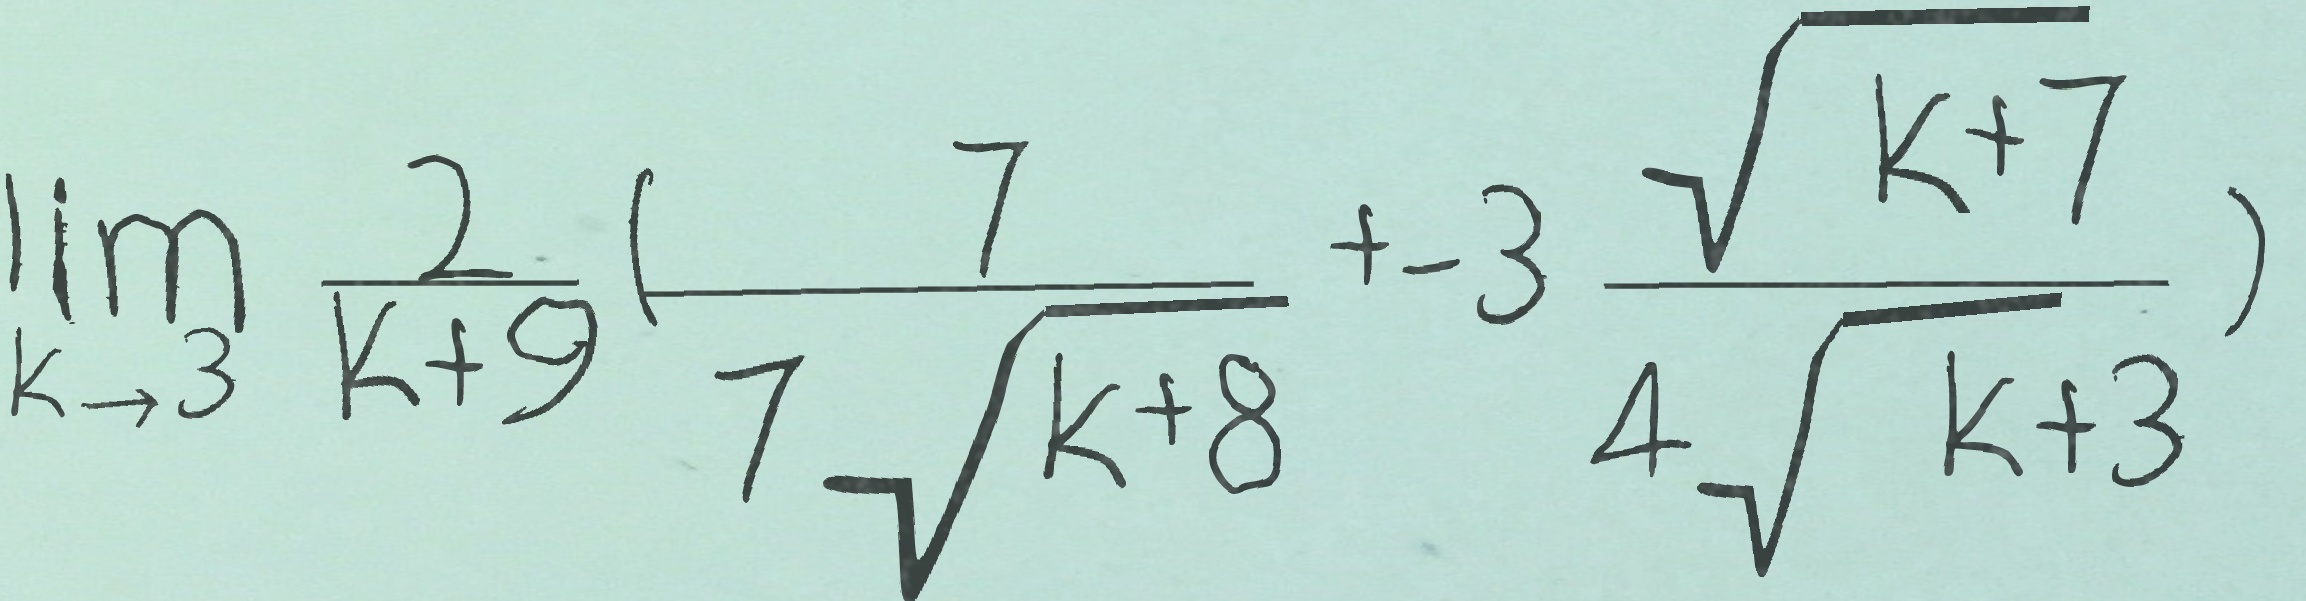 \lim_{k \to 3} \frac{2}{k+9} ( \frac{7}{7\sqrt{k+8}} + -3 \frac{\sqrt{k+7}}{4\sqrt{k+3}} )